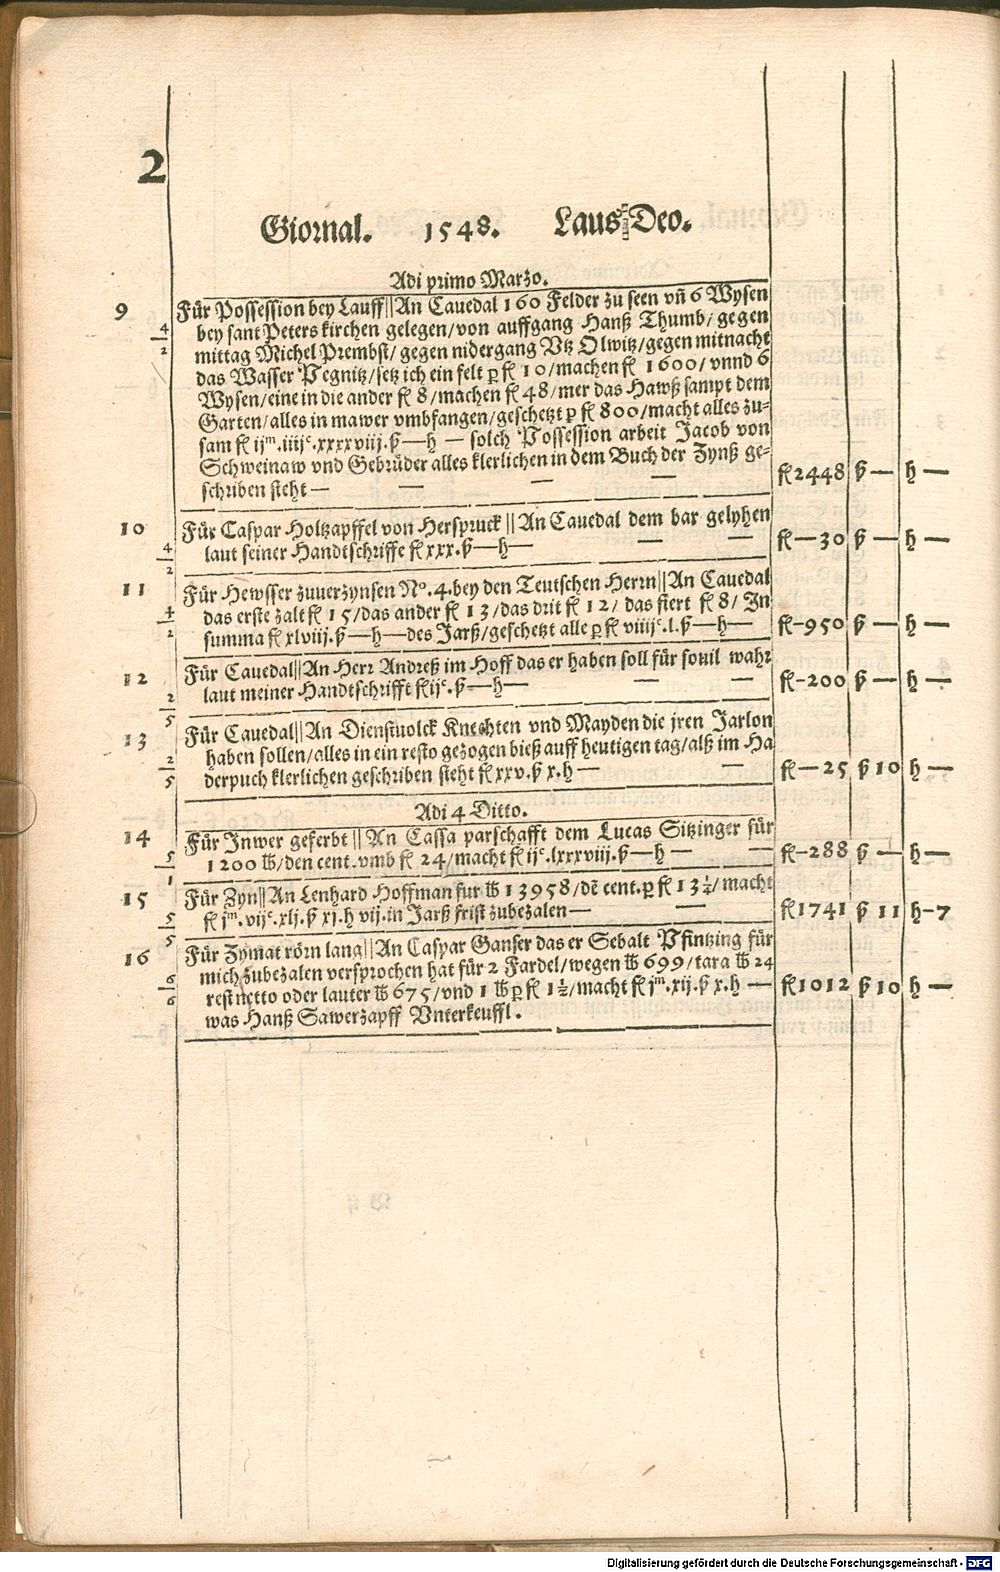 2
Giornal. 1548. Laus Deo.
Adi primo Marzo.
9 Für Possession bey Lauff || An Cauedal 160 Felder zu seen vñ 6 Wysen
4/2 bey sant Peters kirchen gelegen/von auffgang Hanß Thumb/ gegen
mittag Michel Prembst/gegen nidergang Vtz Olwitz/gegen mitnacht
das Wasser Pegnitz/setz ich ein felt ꝑ fl 10/machen fl 1600/vnnd 6
Wysen/eine in die ander fl 8/machen fl 48/mer das Hawß sampt dem
Garten/alles in mawer vmbfangen/geschetzt ꝑ fl 800/macht alles zu=
sam fl ijᵐ.iiijᶜ.xxxxviij.ß—h — solch Possession arbeit Jacob von
Schweinaw vnd Gebrüder alles klerlichen in dem Buch der Zynß ge=
schriben steht — — — — fl 2448 ß — h —
10 Für Caspar Holtzapffel von Herspruck || An Cauedal dem bar gelyhen
4/2 laut seiner Handtschriffe fl xxx.ß—h— — — fl—30 ß — h —
11 Für Hewsser zuuerzynsen Nº.4.bey den Teutschen Herrn || An Cauedal
4/2 das erste zalt fl 15/das ander fl 13/das drit fl 12/ das fiert fl 8/ Jn
summa fl xlviij.ß—h—des Jarß/geschetzt alle ꝑ fl viiijᶜ.l.ß—h— fl—950 ß — h —
12 Für Cauedal || An Herr Andreß im Hoff das er haben soll für souil wahr
2/5 laut meiner Handtschrifft fl ijᶜ.ß—h— — — fl—200 ß — h —
13 Für Cauedal || An Dienstuolck Knechten vnd Mayden die jren Jarlon
2/5 haben sollen/alles in ein resto gezogen bieß auff heutigen tag/alß im Ha
derpuch klerlichen geschriben steht fl xxv.ß x.h — — fl—25 ß 10 h —
Adi 4 Ditto.
14 Für Jnwer geferbt || An Cassa parschafft dem Lucas Sitzinger für
5/1 1200 ℔/den cent.vmb fl 24/macht fl ijᶜ.lxxxviij.ß—h — — — fl—288 ß — h —
15 Für Zyn || An Lenhard Hoffman fur ℔ 13958/dē cent.ꝑ fl 13½/macht
5/5 fl jᵐ.vijᶜ.xlj.ß xj.h vij.in Jarß frist zubezalen— — fl 1741 ß 11 h—7
16 Für Zymat rörn lang || An Caspar Ganser das er Sebalt Pfintzing für
6/6 mich zubezalen versprochen hat für 2 Fardel/wegen ℔ 699/tara ℔ 24
rest netto oder lauter ℔ 675/vnd 1 ℔ ꝑ fl 1½/macht fl jᵐ.xij.ß x.h — fl 1012 ß 10 h —
was Hanß Sawerzapff Vnterkeuffl.
Digitalisierung gefördert durch die Deutsche Forschungsgemeinschaft - DFG